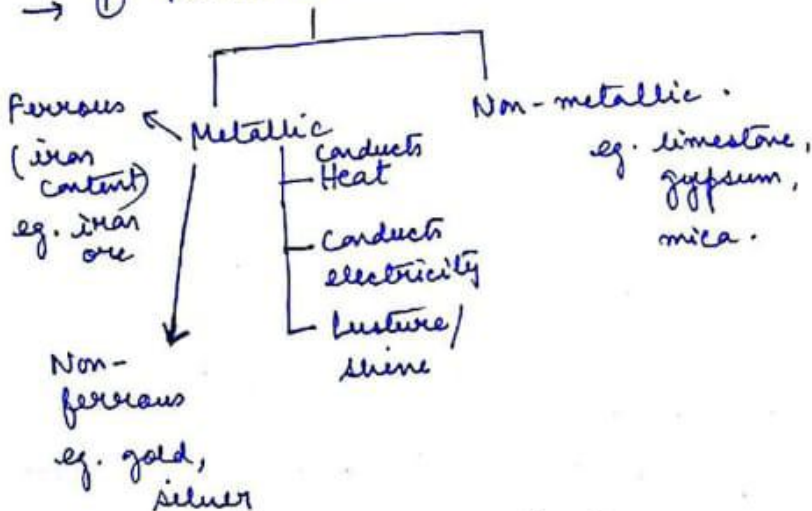 → ①
Ferrous
(iron
content)
eg. iron
ore
Metallic
conducts
Heat
Conducts
electricity
Lusture/
shine
Non-
ferrous
eg. gold,
silver
Non-metallic.
eg. limestone,
gypsum,
mica.